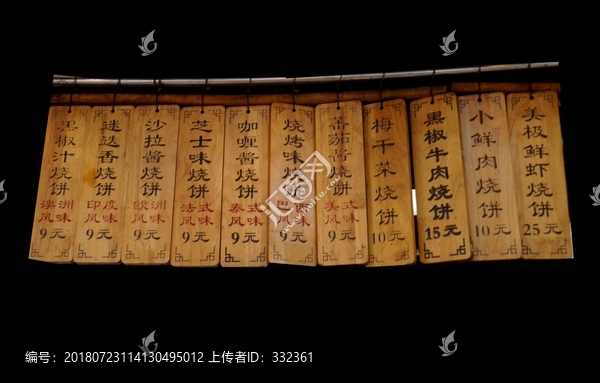 黑椒汁烧饼
澳洲风味
9元
迷迭香烧饼
印度风味
9元
沙拉酱烧饼
欧洲风味
9元
芝士味烧饼
法式风味
9元
咖喱酱烧饼
泰式风味
9元
烧烤味烧饼
巴西风味
9元
蕃茄酱烧饼
美式风味
9元
梅干菜烧饼
10元
黑椒牛肉烧饼
15元
小鲜肉烧饼
10元
美极鲜虾烧饼
25元
编号：20180723114130495012 上传者ID：332361